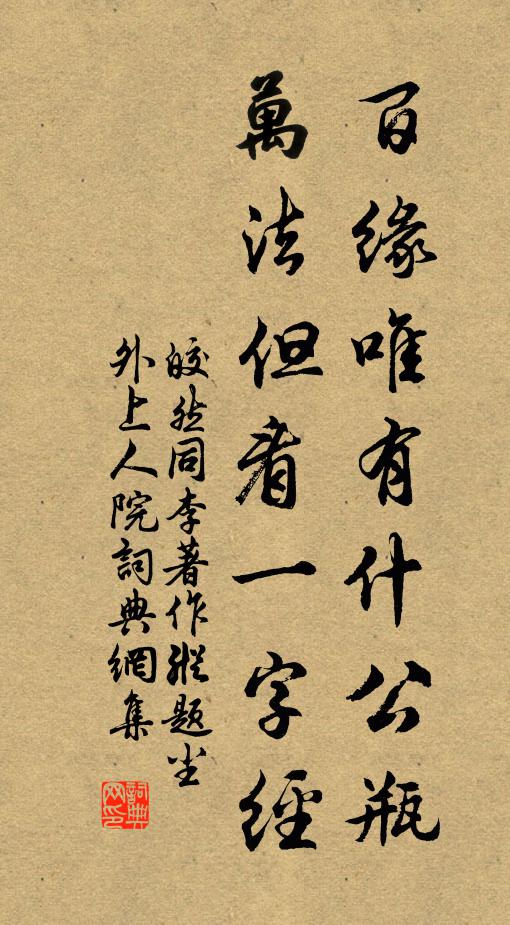 百緣唯有什公瓶
萬法但看一字經
皎然同李著作縱題尘
外上人院詞典網集
詞典网印